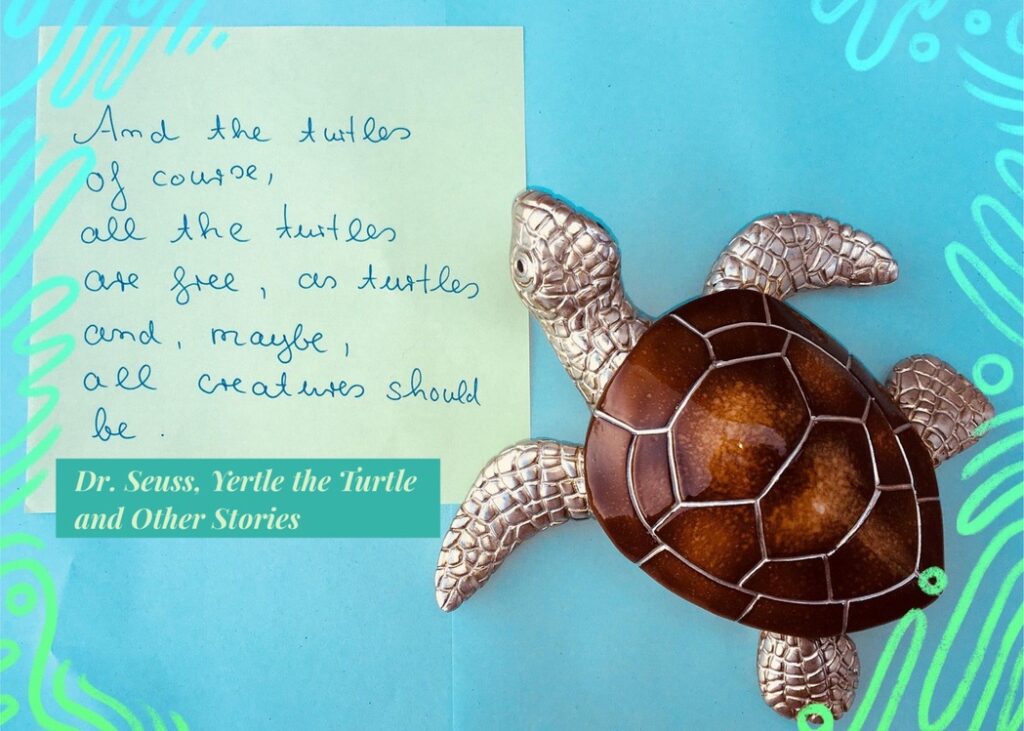 And the turtles
of course,
all the turtles
are free, as turtles
and, maybe,
all creatures should
be.
Dr. Seuss, Yertle the Turtle
and Other Stories